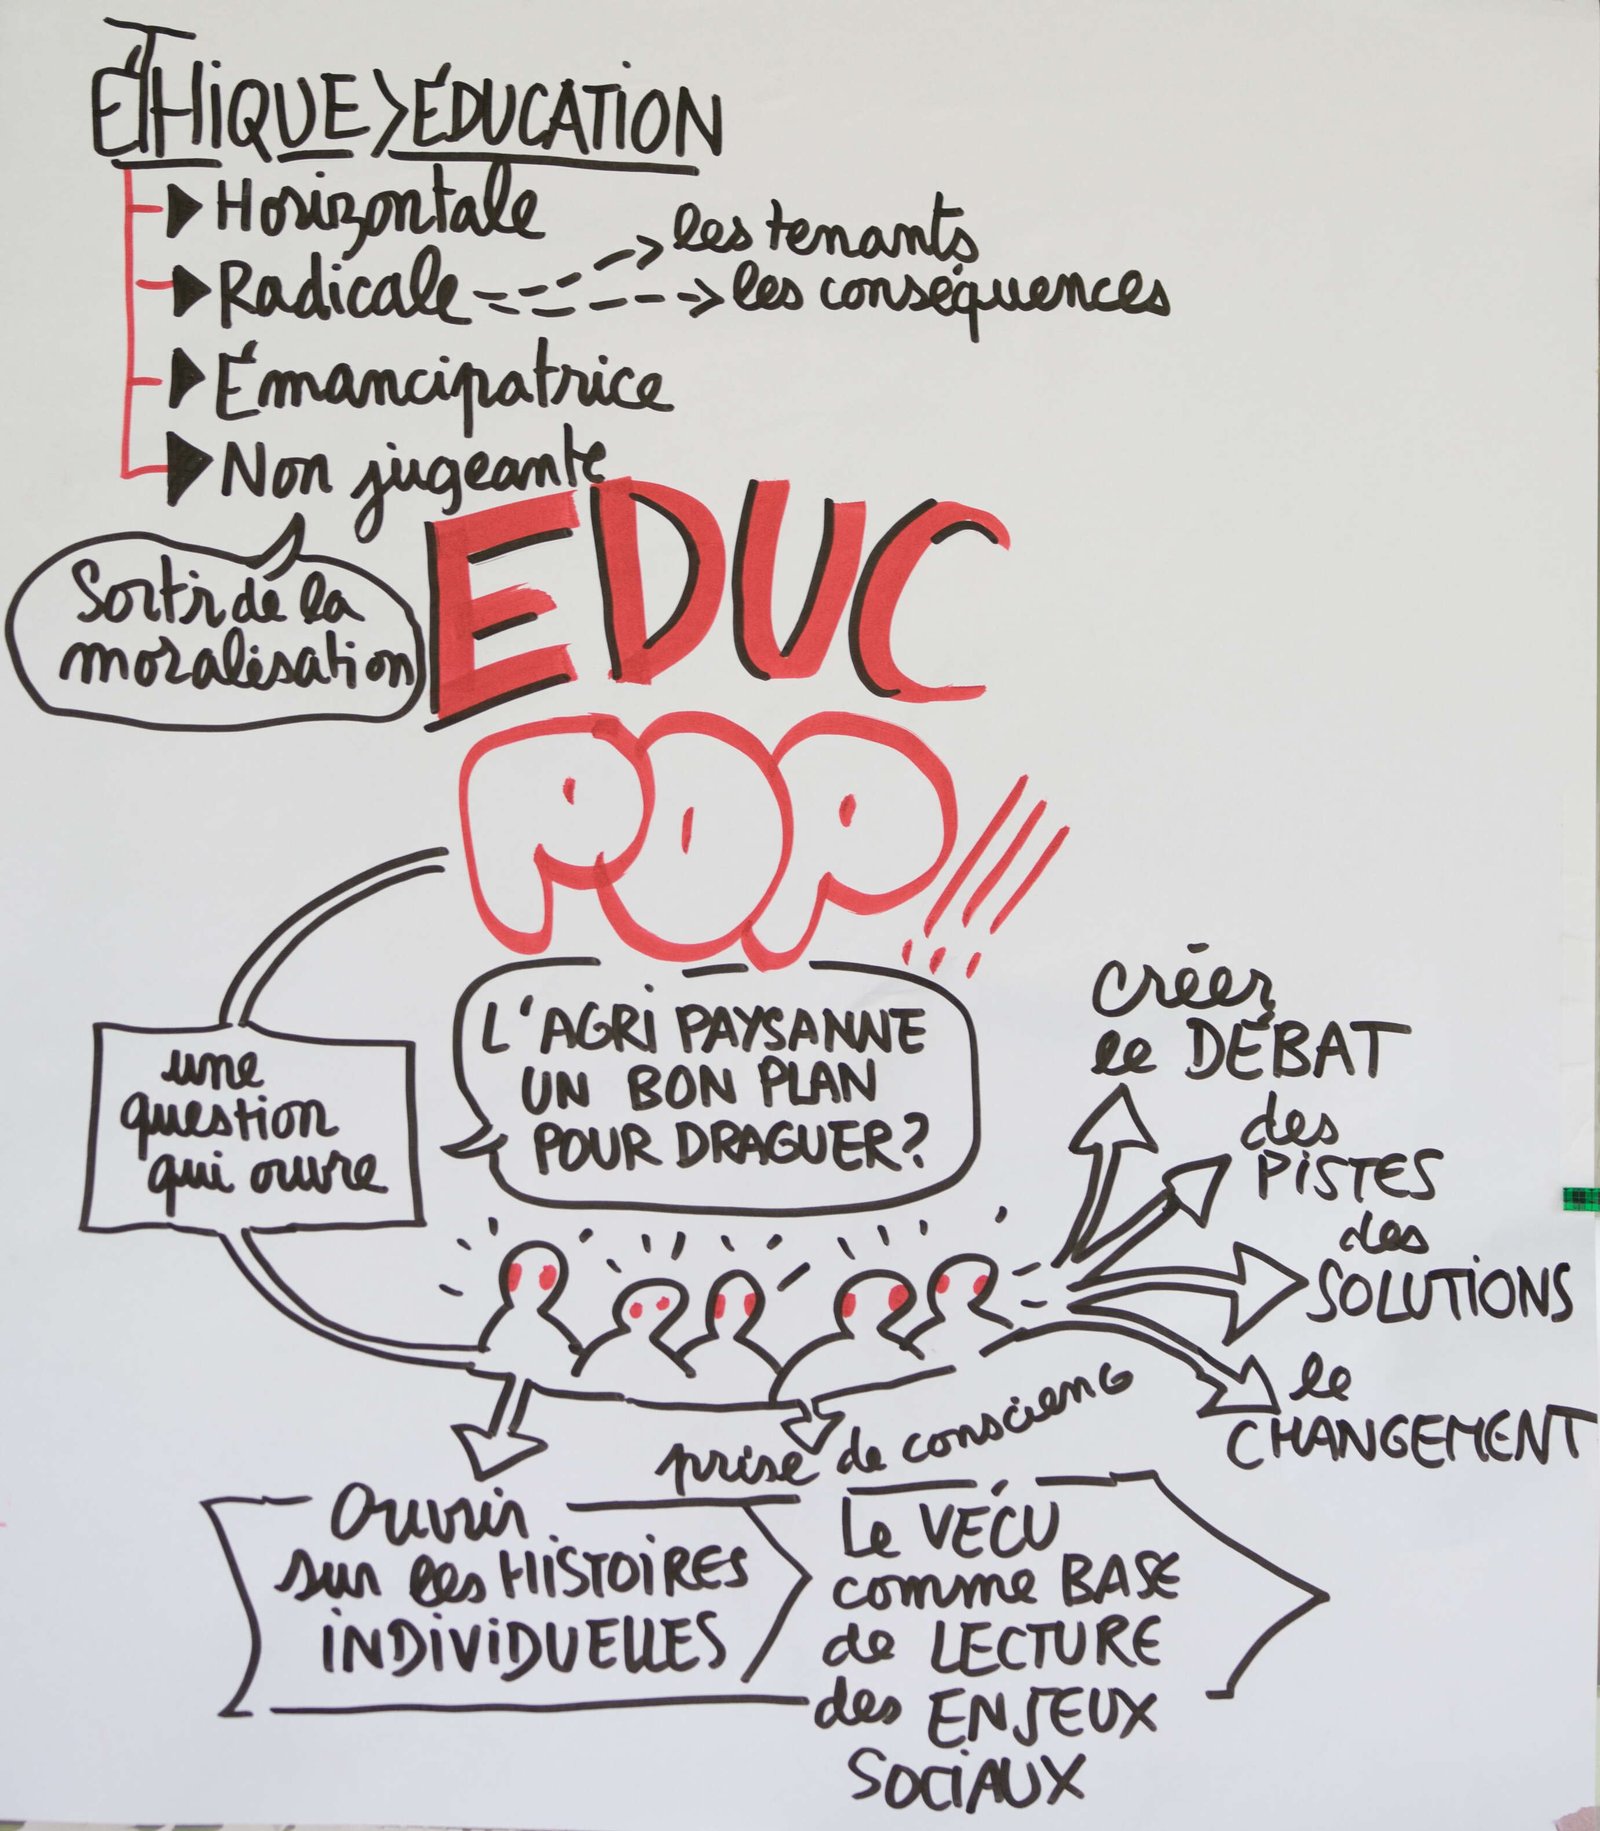 ÉTHIQUE > ÉDUCATION
Horizontale
Radicale
les tenants
les conséquences
Émancipatrice
Non jugeante
Sortir de la
moralisation
EDUC
POP!!!
une
question
qui ouvre
L'AGRI PAYSANNE
UN BON PLAN
POUR DRAGUER?
créer
le DÉBAT
des
PISTES
des
SOLUTIONS
le
CHANGEMENT
prise de conscience
Ouvrir
sur les HISTOIRES
INDIVIDUELLES
Le VÉCU
comme BASE
de LECTURE
des ENJEUX
SOCIAUX